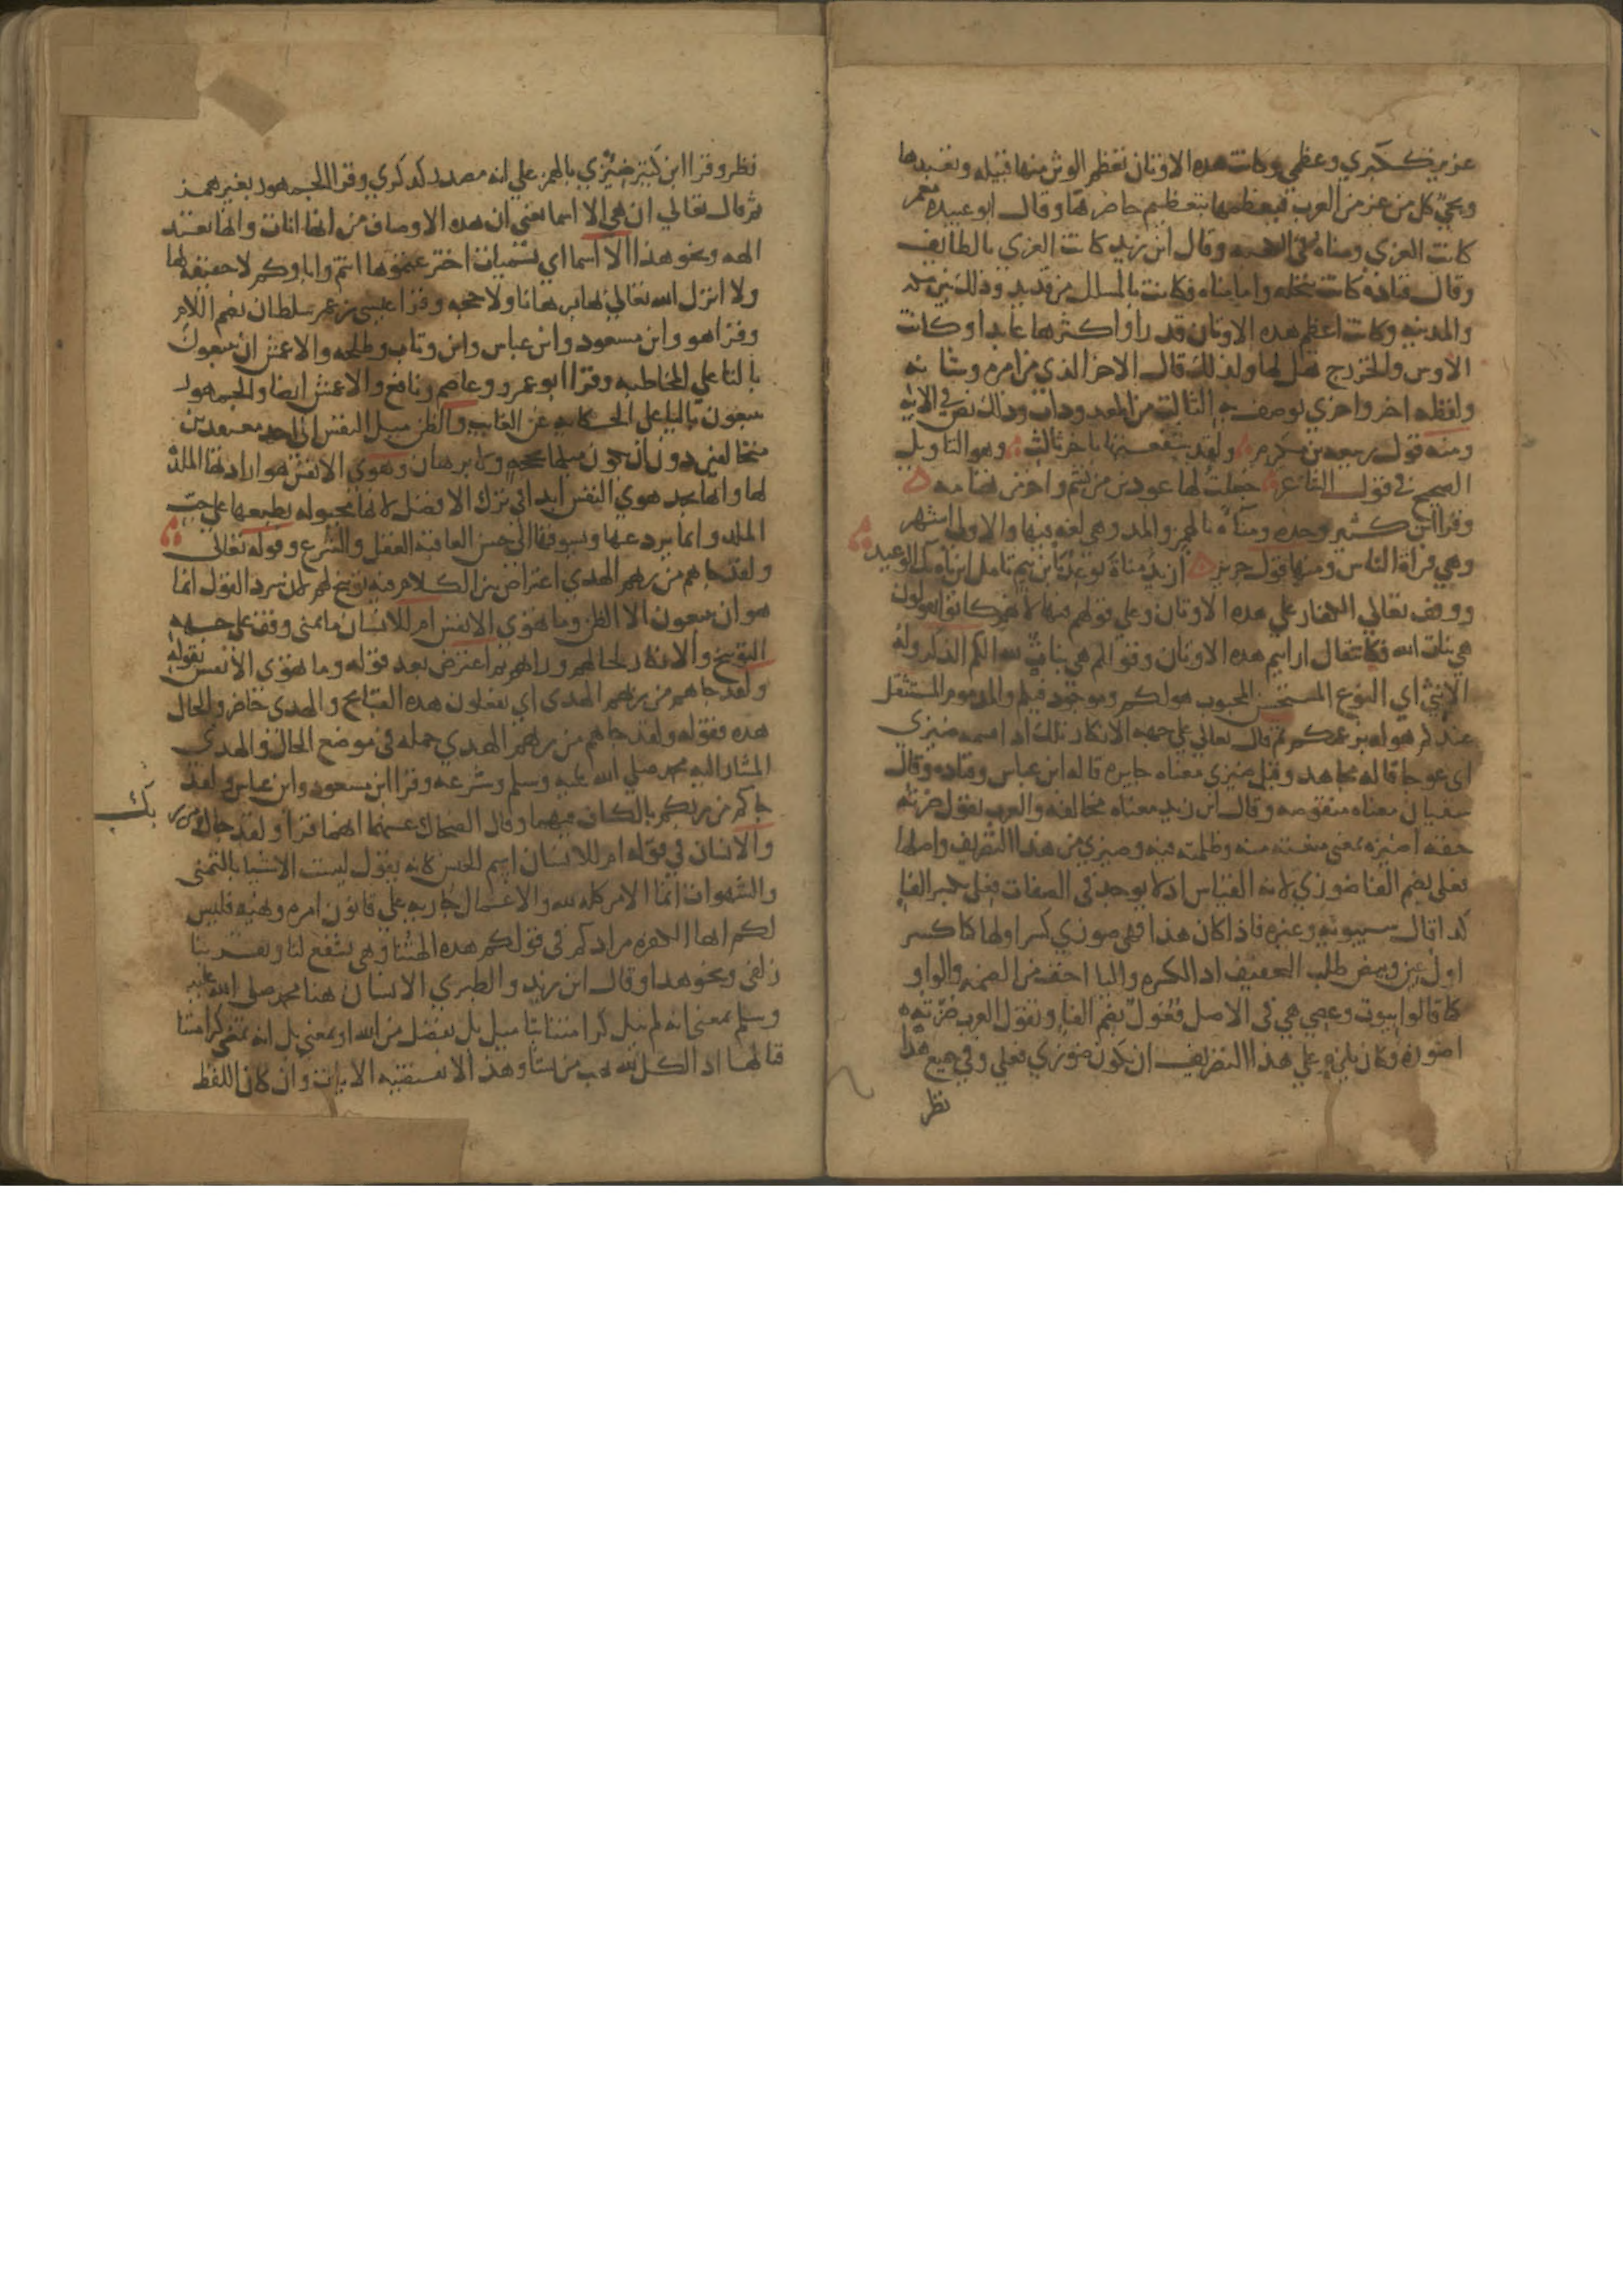 عزيز ككبري وعظمي وكانت هذه الاوثان تعظم الوثن منها قبيله وتعبدها
ويجي كل من عز من العرب فيعظمها بتعظيم حاضرها وقال ابو عبيدة معمر
كانت العزي ومناة في الكعبه وقال ابن زيد كانت العزي بالطايف
وقال قتادة كانت بنخله واما مناه فكانت بالمشلل من قديد وذلك بين مكه
والمدينه وكانت اعظم هذه الاوثان قدرا واكثرها عابدا وكانت
الاوس والخزرج تهل لها ولذلك قال الاخر الذي من امره وشانه
ولفظه اخر واخري يوصف به الثالث من المعدودات وذلك نص في الايه
ومنه قول ربيعه بن مكرم ولقد شفعتهما باخر ثالث وهو التاويل
الصحيح في قول الشاعر جعلت لها عودين من نشم واخر من ثمامه
وقرا ابن كثير وحده ومناءة بالهمز والمد وهي لغه فيها والاولي اشهر
وهي قراة الناس ومنها قول جرير ازيد مناة توعد يا بن تيم تامل اين تاه بك الوعيد
ووقف تعالي الكفار علي هذه الاوثان وعلي قولهم فيها لانهم كانوا يقولون
هي بنات الله فكانه قال ارايتم هذه الاوثان وقولكم هي بنات لله الكم الذكر وله
الانثي اي النوع المستحسن المحبوب هو لكم وموجود فيكم والمذموم المستثقل
عندكم هو له بزعمكم ثم قال تعالي علي جهه الانكار تلك اذا قسمه ضيزي
اي عوجا قاله مجاهد وقيل ضيزي معناه جايره قاله ابن عباس وقتاده وقال
سفيان معناه منقوصه وقال ابن زيد معناه مخالفه والعرب تقول ضزته
حقه اضيزه بمعني منعته منه وظلمته فيه وضيزي من هذا التصريف واصلها
فعلي بضم الفا ضوزي لانه القياس اذ لا يوجد في الصفات فعلي بكسر الفا
كذا قال سيبويه وغيره فاذا كان هذا فهي ضوزي كسر اولها كما كسر
اول عين وبيض طلب التخفيف اذ الكسره واليا اخف من الضمه والواو
كما قالوا بيوت وعصي هي في الاصل فعول بضم الفا وتقول العرب ضزته
اضوزه وكان يلزم علي هذا التصريف ان يكون ضوزي فعلي وفي جميع هذا
نظر
نظر وقرا ابن كثير ضئزي بالهمز علي انه مصدر كذكري وقرا الجمهور بغير همز
ثم قال تعالي ان هي الا اسما يعني ان هذه الاوصاف من انها اناث وانها تعتقد
الهه ونحو هذا الا اسما اي تسميات اخترعتموها انتم واباوكم لا حقيقه لها
ولا انزل الله تعالي بها برهانا ولا حجه وقرا عيسي بن عمر سلطان بضم اللام
وقرا هو وابن مسعود وابن عباس وابن وثاب وطلحه والاعمش ان تتبعون
بالتا علي المخاطبه وقرا ابو عمرو وعاصم ونافع والاعمش ايضا والجمهور
يتبعون باليا علي الحكايه عن الغايب والظن ميل النفس الي احد معتقدين
متخالفين دون ان يكون ميلها بحجه ولا برهان وهوي الانفس هو ارادتها الملذ
لها وانما تجد هوي النفس ابدا في ترك الافضل لانها مجبوله بطبعها علي حب
الملذ وانما يردعها ويسوقها الي حسن العاقبه العقل والشرع وقوله تعالي
ولقد جاهم من ربهم الهدي اعتراض بين الكلام فيه توبيخ لهم لان سرد القول انما
هو ان يتبعون الا الظن وما تهوي الانفس ام للانسان ما تمني وقف علي جهه
التوبيخ والانكار لحالهم ورايهم ثم اعترض بعد قوله وما تهوي الانفس بقوله
ولقد جاهم من ربهم الهدي اي يفعلون هذه القبايح والهدي حاضر والحال
هذه فقوله ولقد جاهم من ربهم الهدي جمله في موضع الحال والهدي
المشار اليه محمد صلي الله عليه وسلم وشرعه وقرا ابن مسعود وابن عباس ولقد
جاكم من ربكم بالكاف فيهما وقال الضحاك عنهما انهما قرا ولقد جاك من ر بك
والانسان في قوله ام للانسان اسم الجنس كانه يقول ليست الاشيا بالتمني
والشهوات انما الامر كله لله والاعمال جاريه علي قانون امره ونهيه فليس
لكم ايها الكفره مرادكم في قولكم هذه الهتنا وهي تشفع لنا وتقربنا
زلفي ونحو هذا وقال ابن زيد والطبري الانسان هنا محمد صلي الله عليه
وسلم بمعني انه لم ينل كرامتنا بتاميل بل بفضل من الله او بمعني بل انه تمني كرامتنا
فنالها اذ الكل لله يهب من يشا وهذا لا تقتضيه الايات وان كان اللفظ